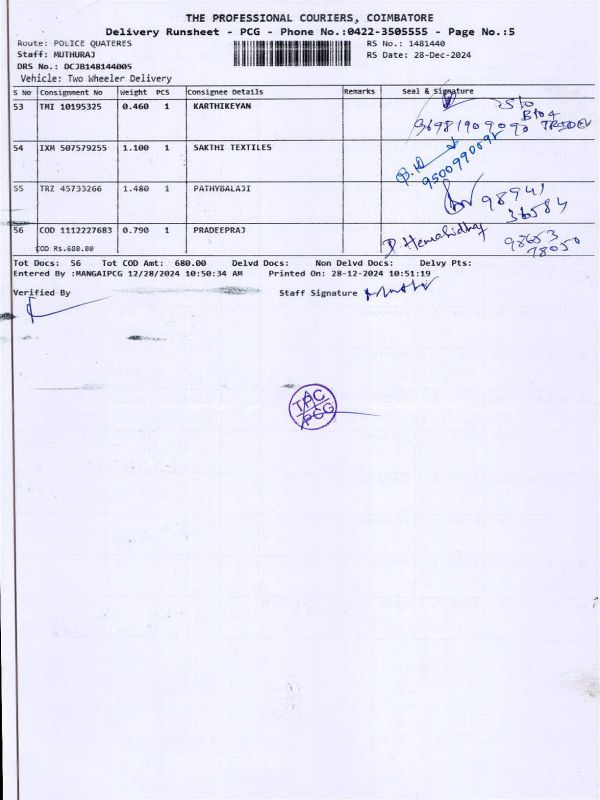 THE PROFESSIONAL COURIERS, COIMBATORE
Delivery Runsheet - PCG - Phone No.:0422-3505555 - Page No.:5
Route: POLICE QUATERES RS No.: 1481440
Staff: MUTHURAJ RS Date: 28-Dec-2024
DRS No.: DCJB148144005
Vehicle: Two Wheeler Delivery
S No Consignment No Weight PCS Consignee Details Remarks Seal & signature
53 TMI 10195325 0.460 1 KARTHIKEYAN
54 IXM 507579255 1.100 1 SAKTHI TEXTILES
9500990095
55 TRZ 45733266 1.480 1 PATHYBALAJI
98941
36584
56 COD 1112227683 0.790 1 PRADEEPRAJ
COD Rs.680.00
D. Hemasridhar 98653
78050
Tot Docs: 56 Tot COD Amt: 680.00 Delvd Docs: Non Delvd Docs: Delvy Pts:
Entered By :MANGAIPCG 12/28/2024 10:50:34 AM Printed On: 28-12-2024 10:51:19
Verified By Staff Signature
TPC
PCG